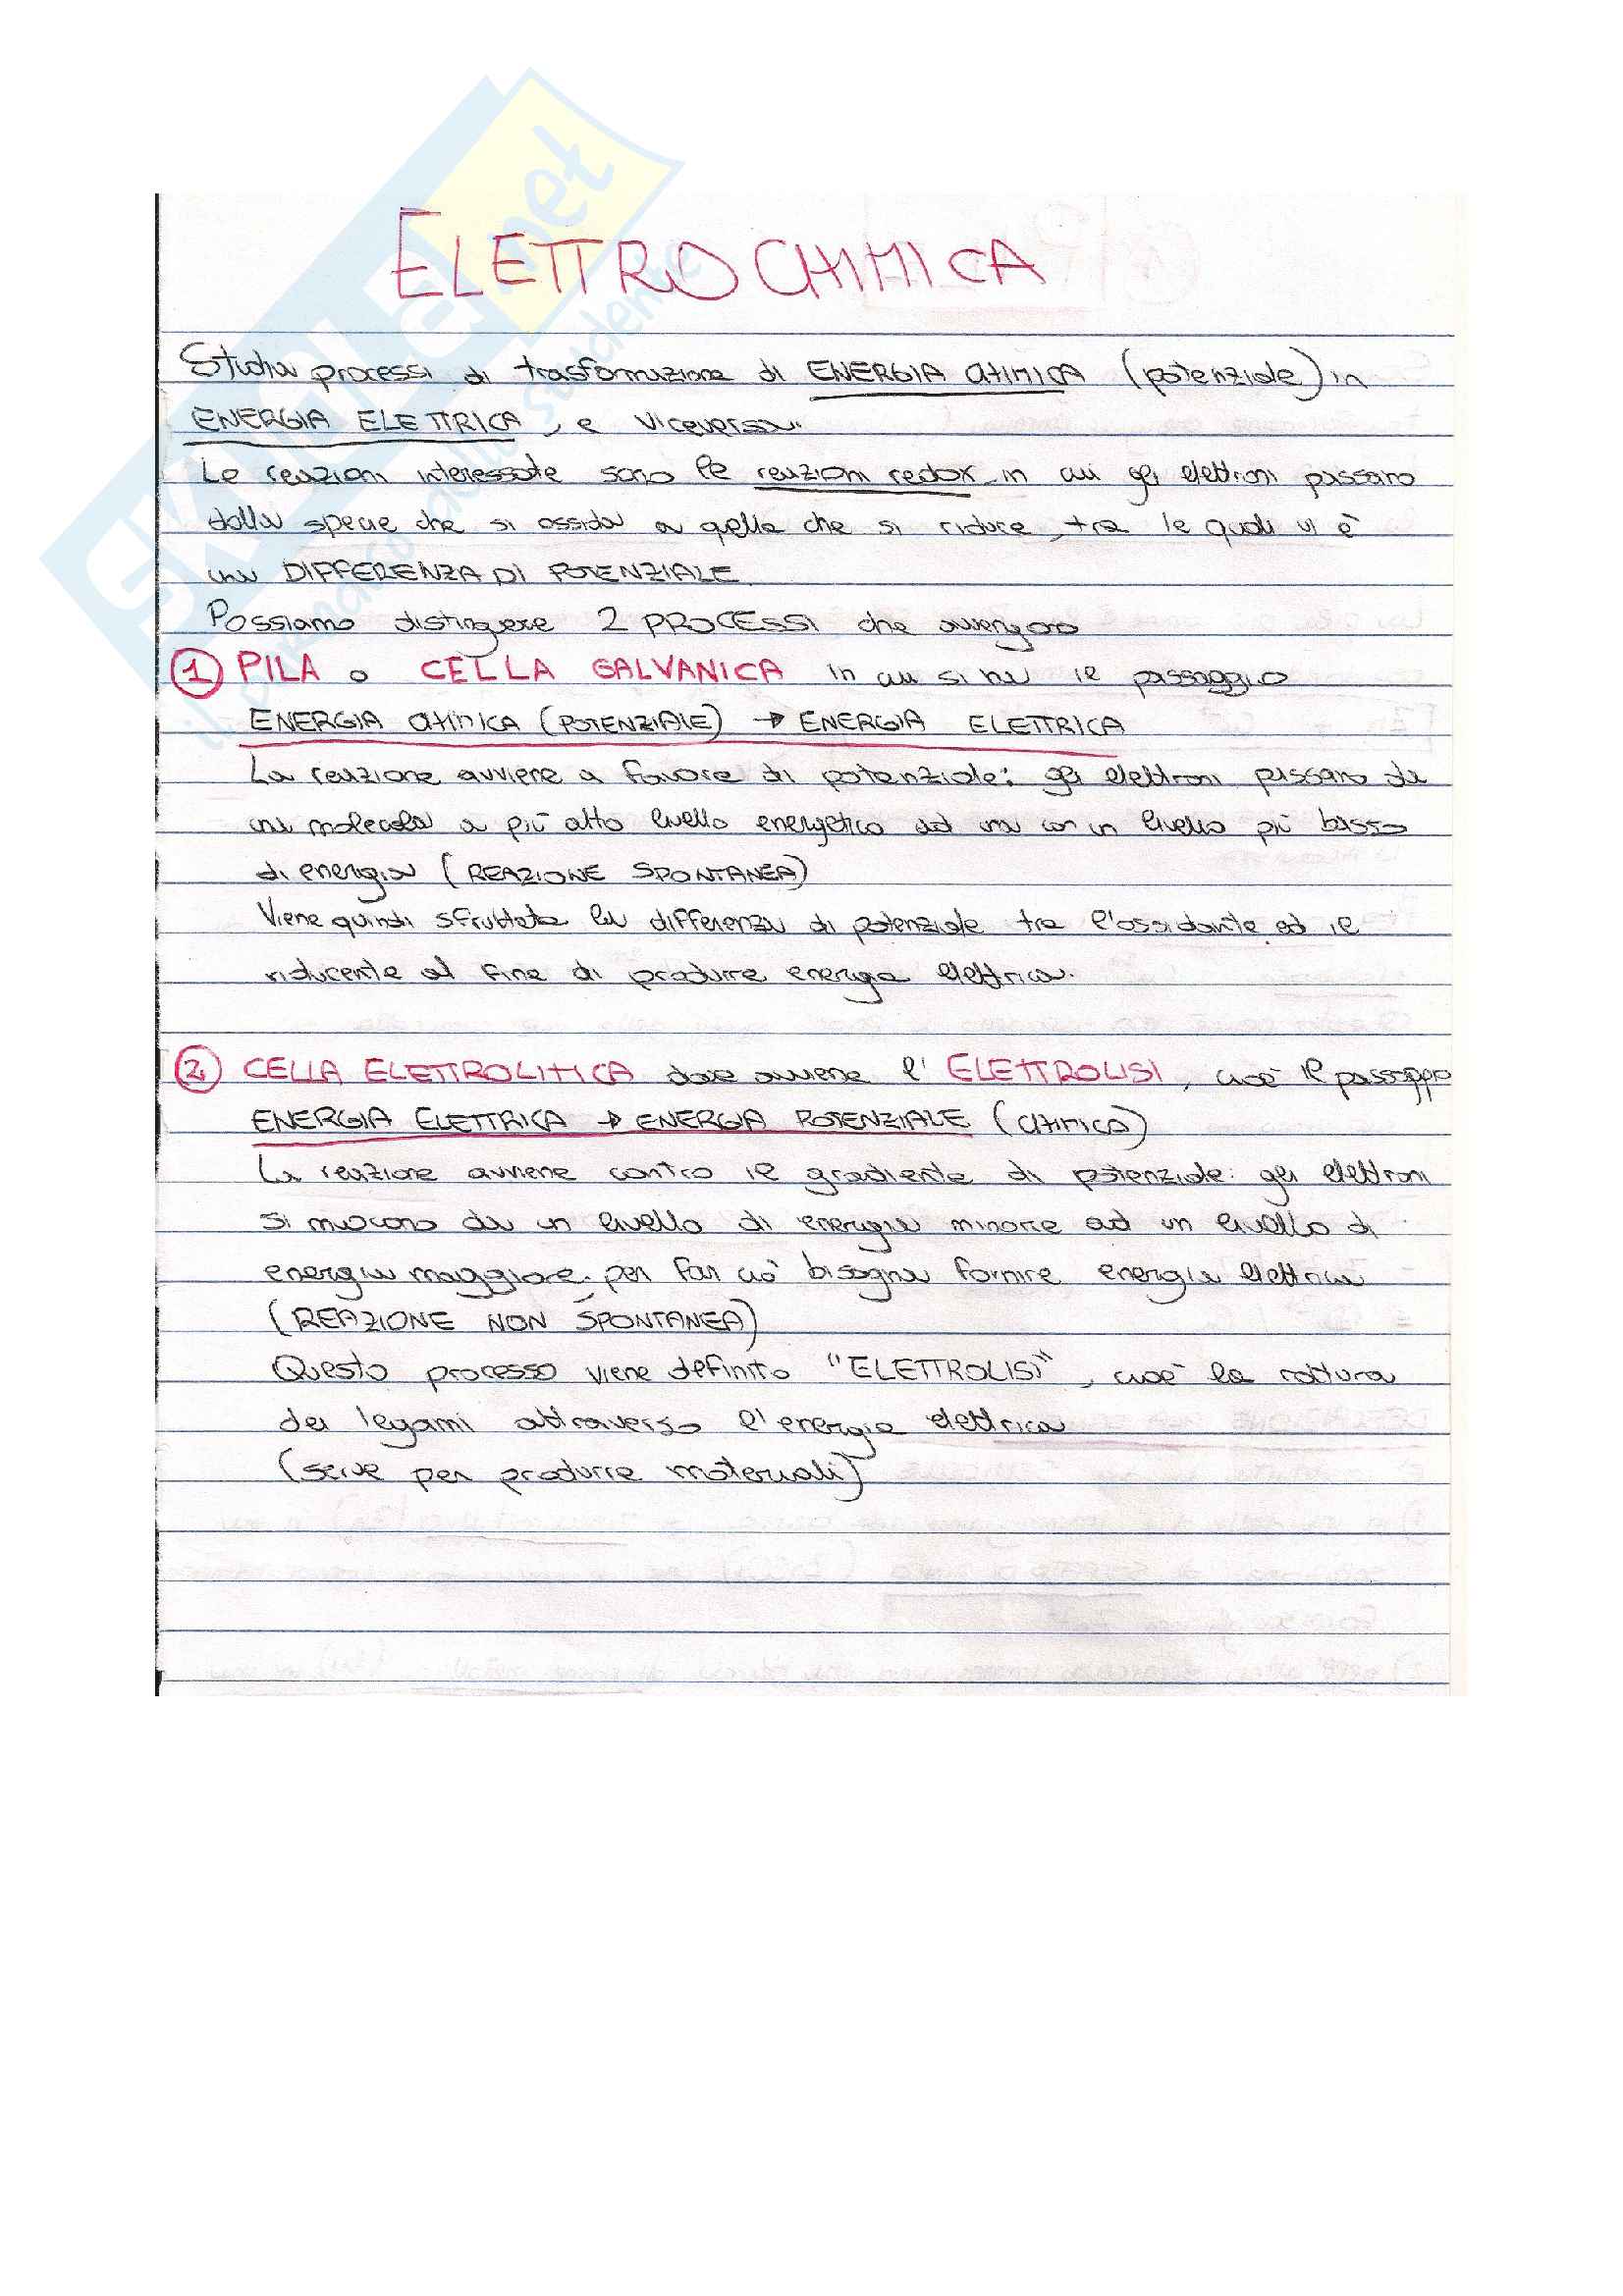 ELETTROCHIMICA
Studia processi di trasformazione di ENERGIA CHIMICA (potenziale) in
ENERGIA ELETTRICA, e viceversa.
Le reazioni interessate sono le reazioni redox in cui gli elettroni passano
dalla specie che si ossida a quella che si riduce, tra le quali vi è
una DIFFERENZA DI POTENZIALE
Possiamo distinguere 2 PROCESSI che avvengono
1 PILA o CELLA GALVANICA in cui si ha il passaggio
ENERGIA CHIMICA (POTENZIALE) → ENERGIA ELETTRICA
La reazione avviene a favore di potenziale: gli elettroni passano da
una molecola a più alto livello energetico ad una con un livello più basso
di energia (REAZIONE SPONTANEA)
Viene quindi sfruttata la differenza di potenziale tra l'ossidante ed il
riducente al fine di produrre energia elettrica.
2 CELLA ELETTROLITICA dove avviene l'ELETTROLISI, cioè il passaggio
ENERGIA ELETTRICA → ENERGIA POTENZIALE (CHIMICA)
La reazione avviene contro il gradiente di potenziale: gli elettroni
si muovono da un livello di energia minore ad un livello di
energia maggiore; per far ciò bisogna fornire energia elettrica
(REAZIONE NON SPONTANEA)
Questo processo viene definito "ELETTROLISI", cioè la rottura
dei legami attraverso l'energia elettrica
(serve per produrre materiali)
skuola.net